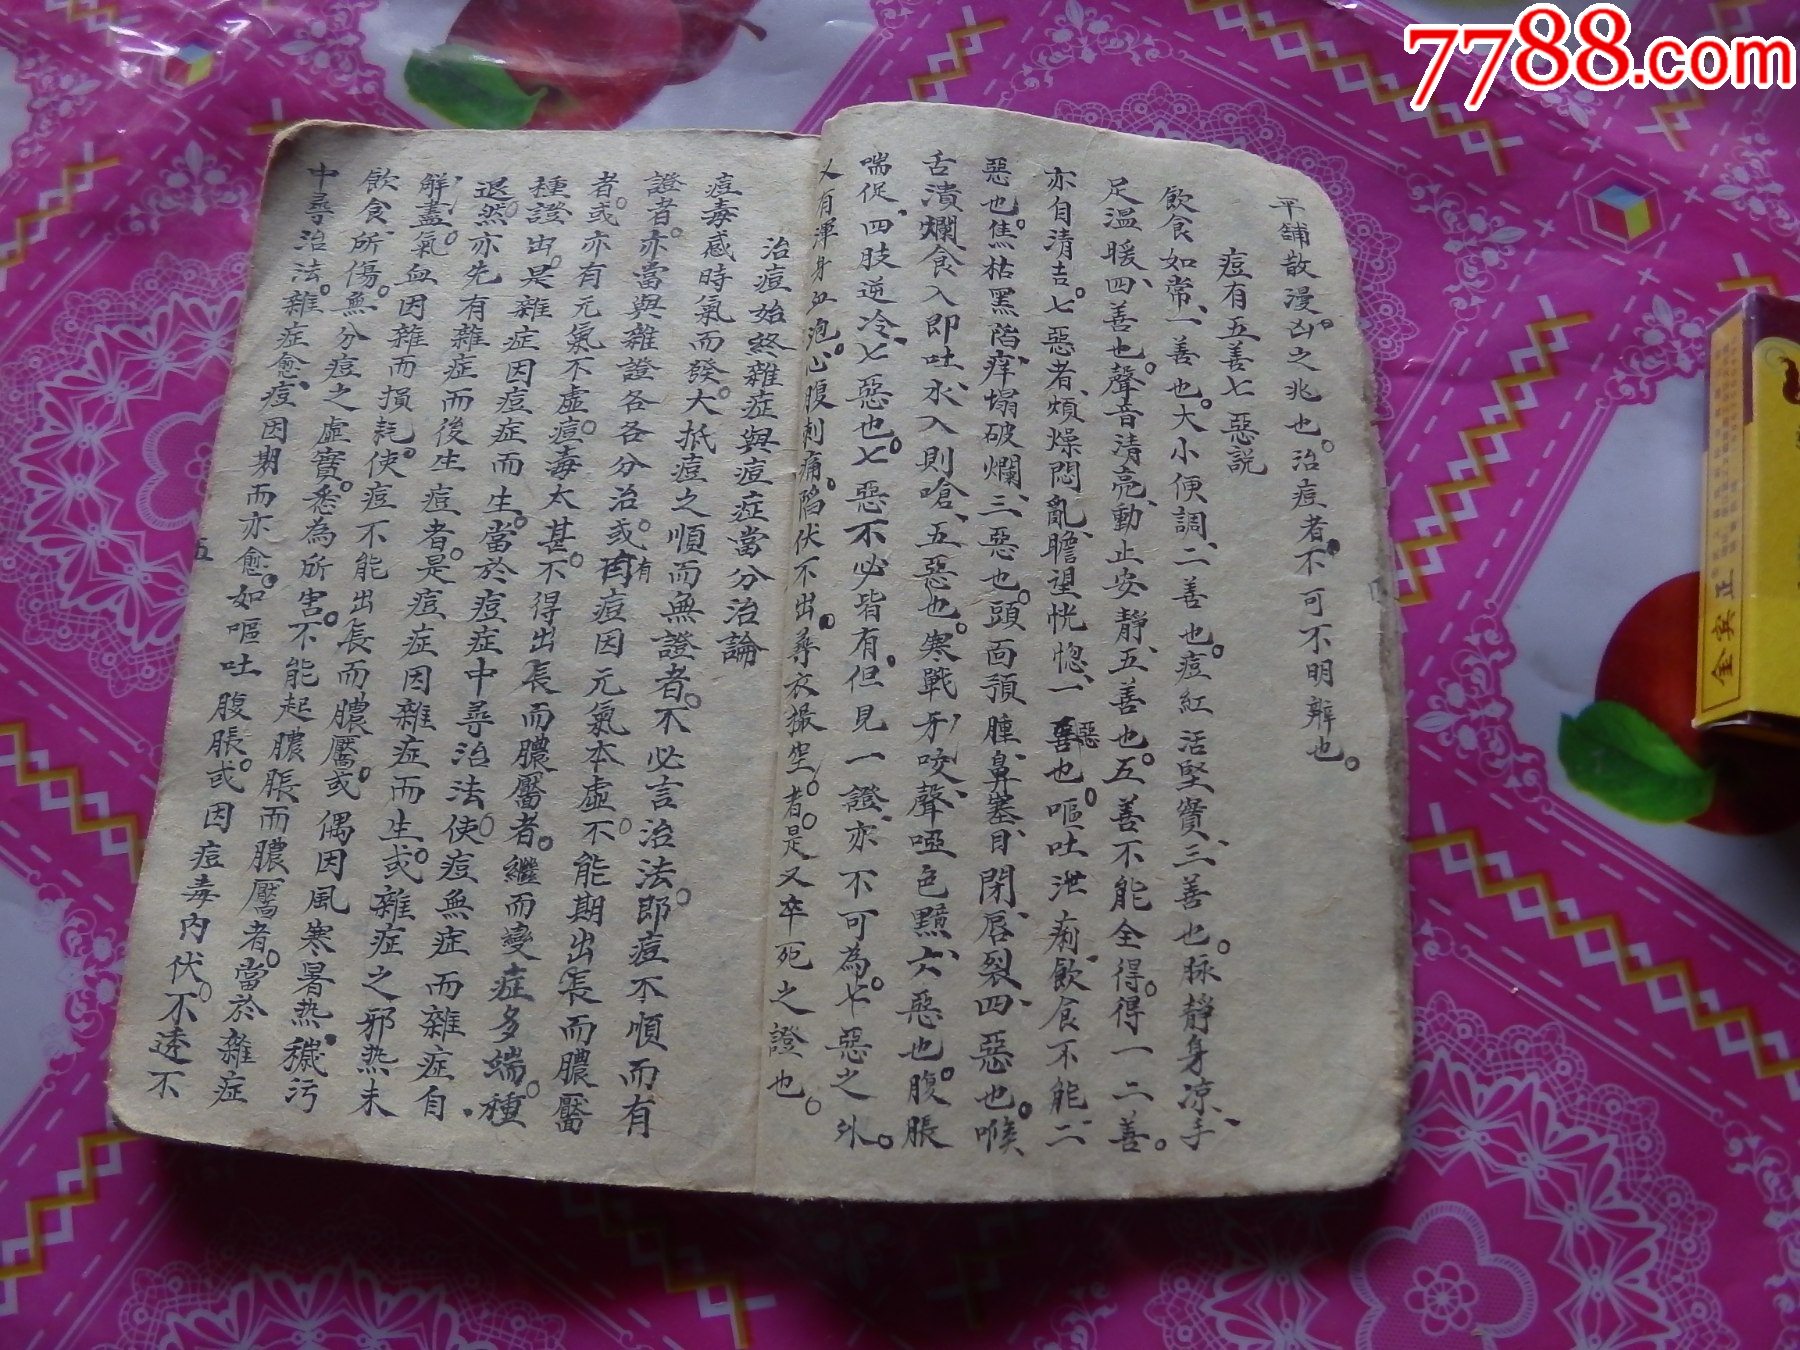 7788.com
平鋪散漫。凶之兆也。治痘者。不可不明辨也。
痘有五善七惡說
飲食如常、一善也。大小便調、二善也。痘紅活堅實、三善也。脉靜身凉、手
足溫暖、四善也。聲音清亮、動止安靜、五善也。五善不能全得。得一二善。
亦自清吉。七惡者、煩燥悶亂、瞻望恍惚、一惡也。嘔吐泄痢、飲食不能、二
惡也。焦枯黑陷、痒塌破爛、三惡也。頭面預腫、鼻塞目閉、唇裂、四惡也。喉
舌潰爛、食入即吐、水入則嗆、五惡也。寒戰牙咬、聲啞色黯、六惡也。腹脹
喘促、四肢逆冷、七惡也。七惡不必皆有。但見一證、亦不可為。七惡之外。
又有渾身血泡。心腹刺痛。陷伏不出。尋衣撮空。者。是又卒死之證也。
治痘始終雜症與痘症當分治論
痘毒感時氣而發。大抵痘之順而無證者。不必言治法。即痘不順而有
證者。亦當與雜證各各分治。或有因痘因元氣本虛。不能期出長而膿靨
者。或亦有元氣不虛。痘毒太甚。不得出長而膿靨者。繼而變症多端。種
種證出。是雜症因痘症而生。當於痘症中尋治法。使痘無症而雜症自
退。然亦先有雜症而後生痘者。是痘症因雜症而生。或雜症之邪熱未
解盡。氣血因雜而損耗。使痘不能出長而膿靨。或偶因風寒暑熱。穢污
飲食、所傷。無分痘之虛實。悉為所害。不能起膿脹而膿靨者。當於雜症
中尋治法。雜症愈。痘因期而亦愈。如嘔吐腹脹。或因痘毒內伏。不透不
五
金宾正